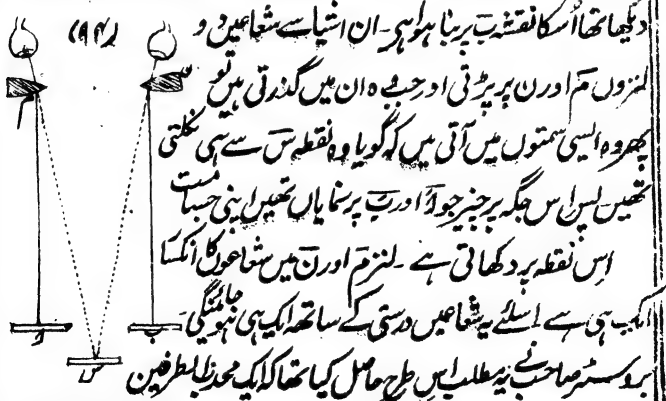 دیکھا تھا اُسکا نقشہ بَ پر بنا ہوا ہی۔ ان اشیا سے شعاعیں دو
(۹۴)
لنزوں مَ اور ن پر پڑتی اور جب وہ ان میں گذرتی ہیں تو
پھر وہ ایسی سمتوں میں آتی ہیں کہ گویا وہ نقطہ سَ سے ہی نکلتی
تھیں پس اس جگہ پر چیز جو اَ اور بَ پر نمایاں تھیں اپنی جسامت
اِس نقطہ پر دکھاتی ہے۔ لنز مَ اور نَ میں شعاعوں کا انکسا
ایک ہی ہے اسلئے یہ شعاعیں درستی کے ساتھ ایک ہی نہو جائینگی۔
بروسٹر صاحب نے یہ مطلب اس طرح حاصل کیا تھا کہ ایک محدب الطرفین
م
ن
اَ
ب
س